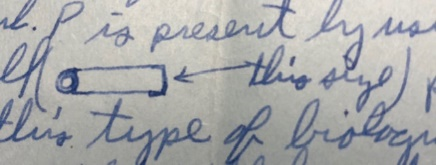 P is present by us
this size)
this type of biologi